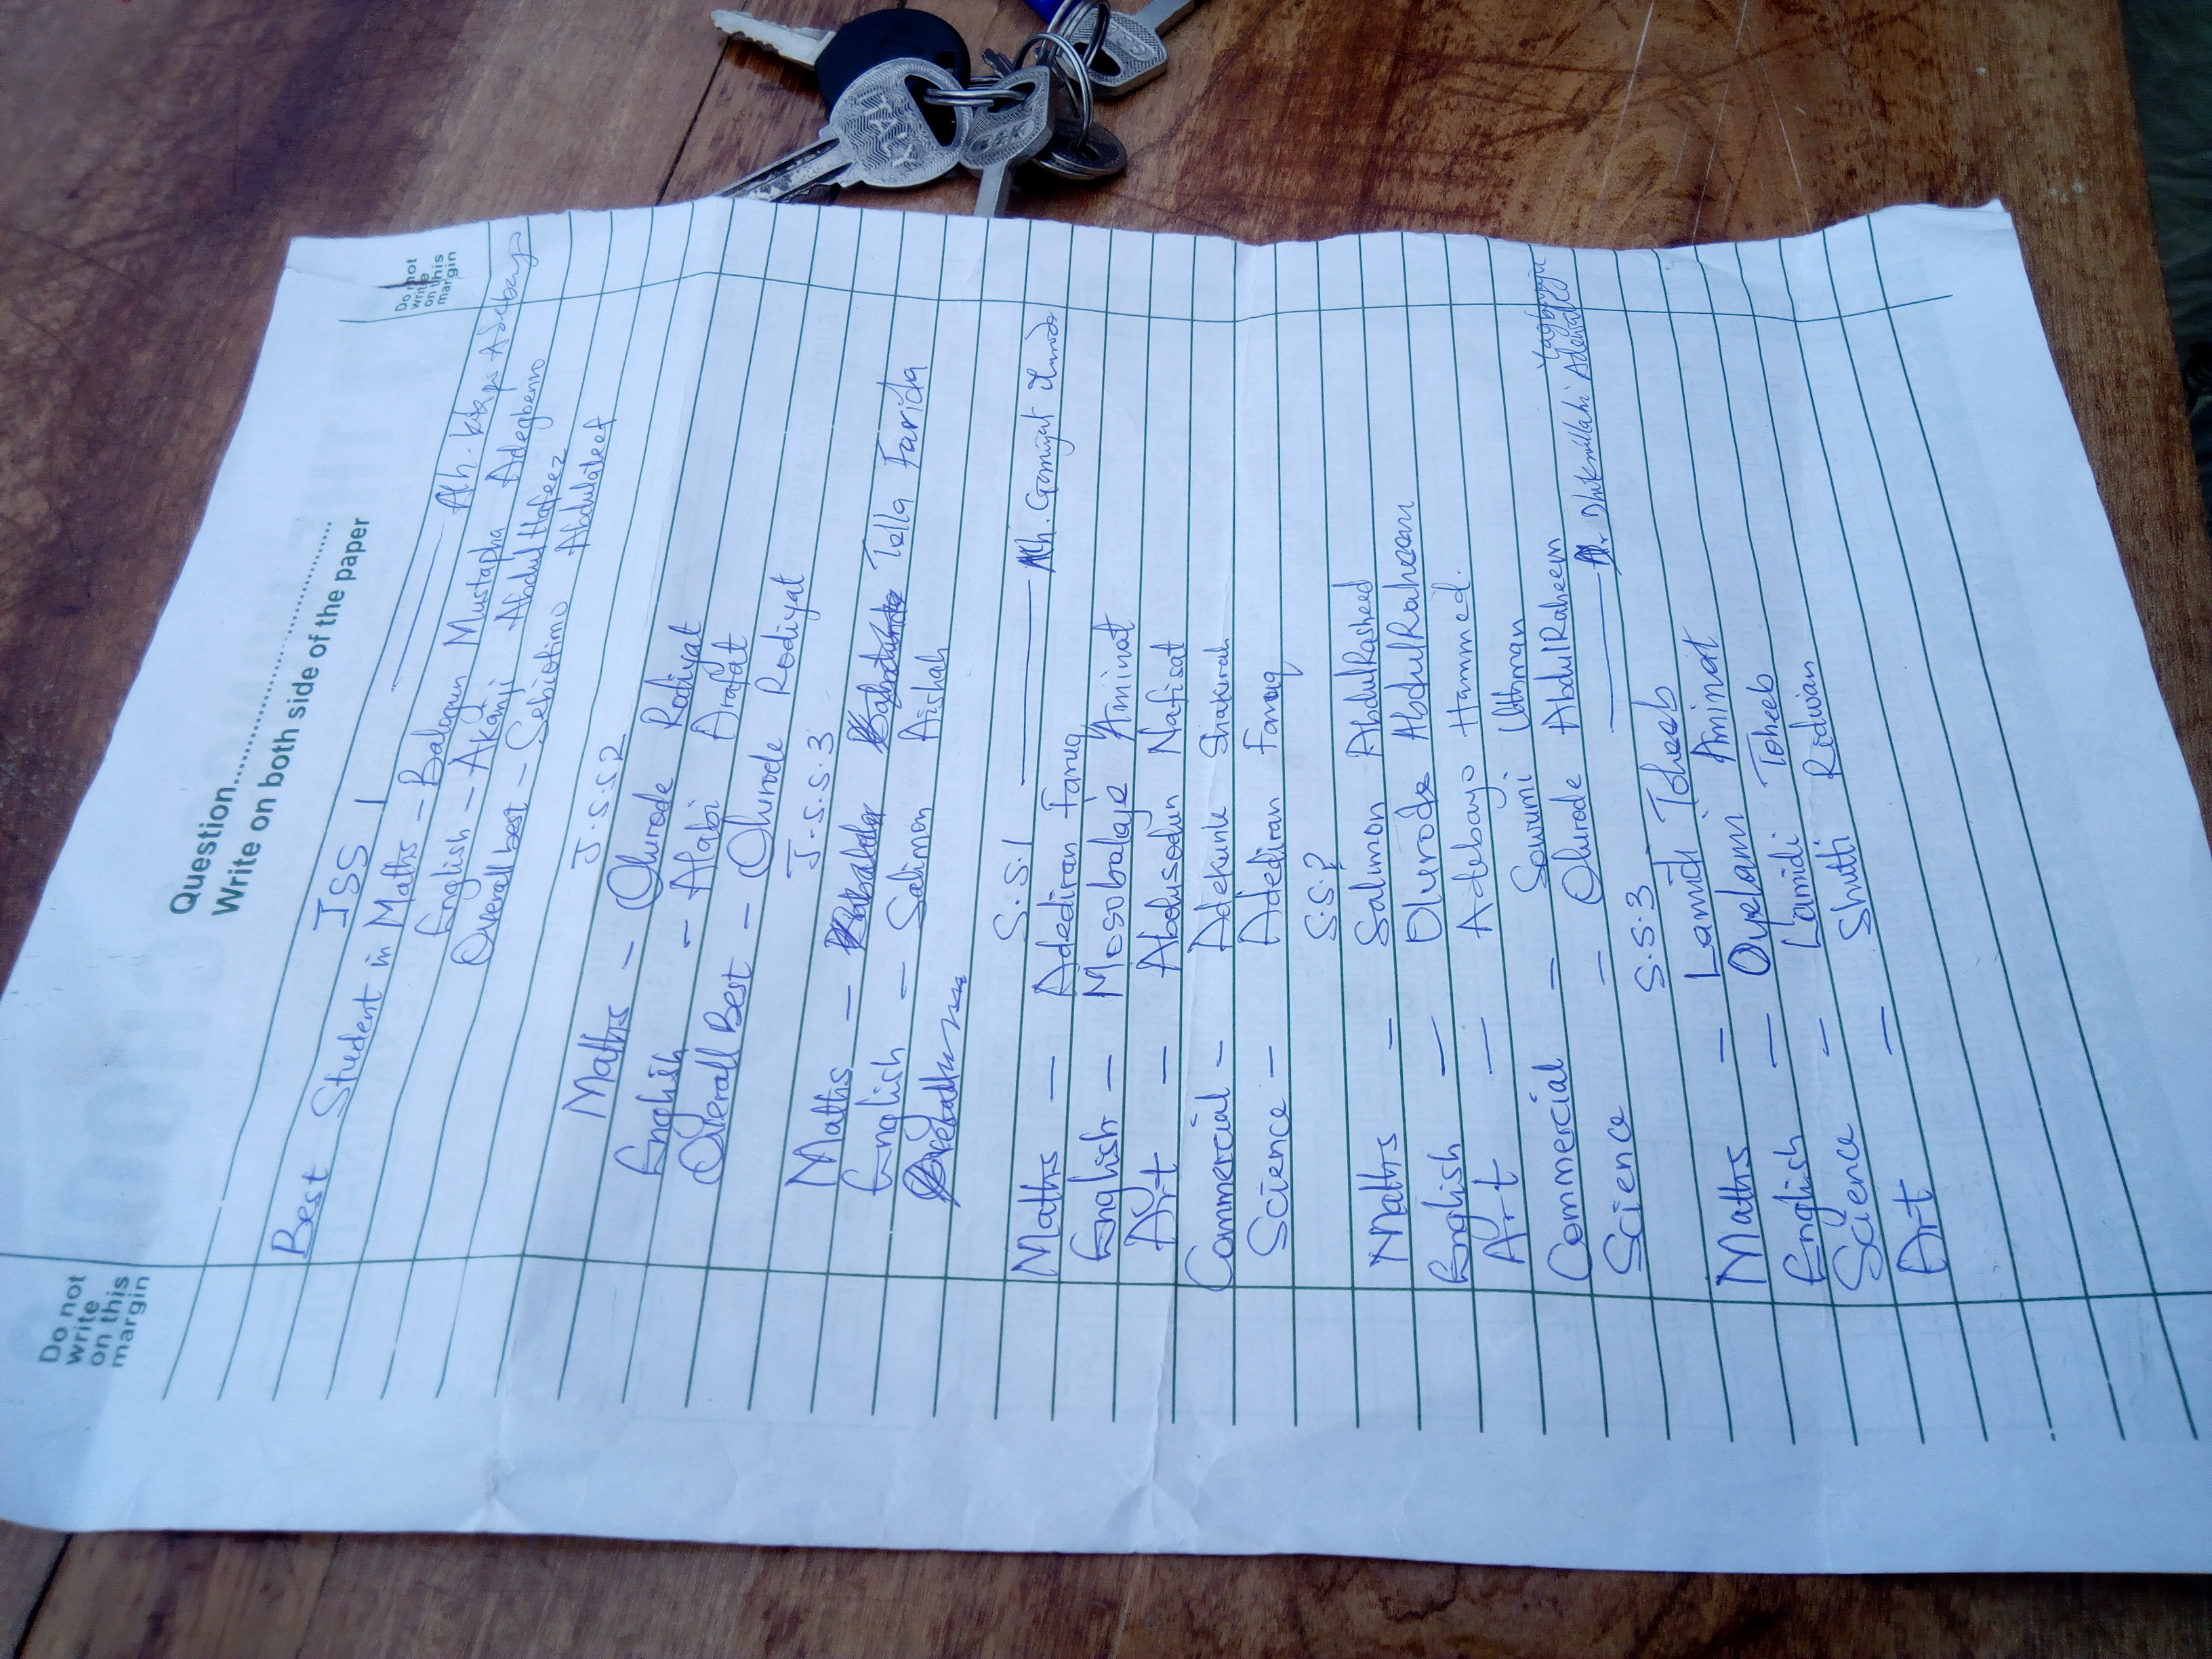 Do not
write
on this
margin
Do not
write
on this
margin
Question..............................
Write on both side of the paper
JSS 1 Alh. Adebayo
Best Student in Maths - Balogun Mustapha Adegbenro
English - Akanji Abdul Hafeez
Overall best - Sebiotimo Abdulateef
J.S.S 2
Maths - Olurode Rodiyat
English - Alabi Arafat
Overall Best - Olurode Rodiyat
J.S.S.3
Maths - Tella Farida
English - Salimon Aishah
S.S.1 Alh. Ganiyat
Maths - Adediran Faruq
English - Mosobalaje Aminat
Art - Abdusodun Nafisat
Commercial - Adekunle Shakirah
Science - Adediran Faruq
S.S.2
Maths - Salimon AbdulRasheed
English - Olurode AbdulRaheem
Art - Adebayo Hammed.
Commercial - Sowumi Uthman
Science - Olurode AbdulRaheem
S.S.3 Dhikrullahi
Maths - Lamidi Toheeb
English - Oyelami Aminat
Science - Lamidi Toheeb
Art - Shittu Ridwan